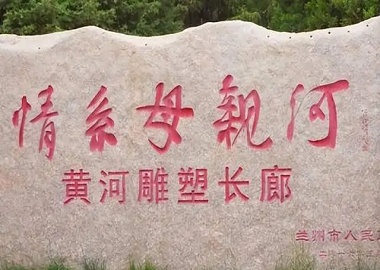 情系母親河
黄河雕塑长廊
兰州市人民